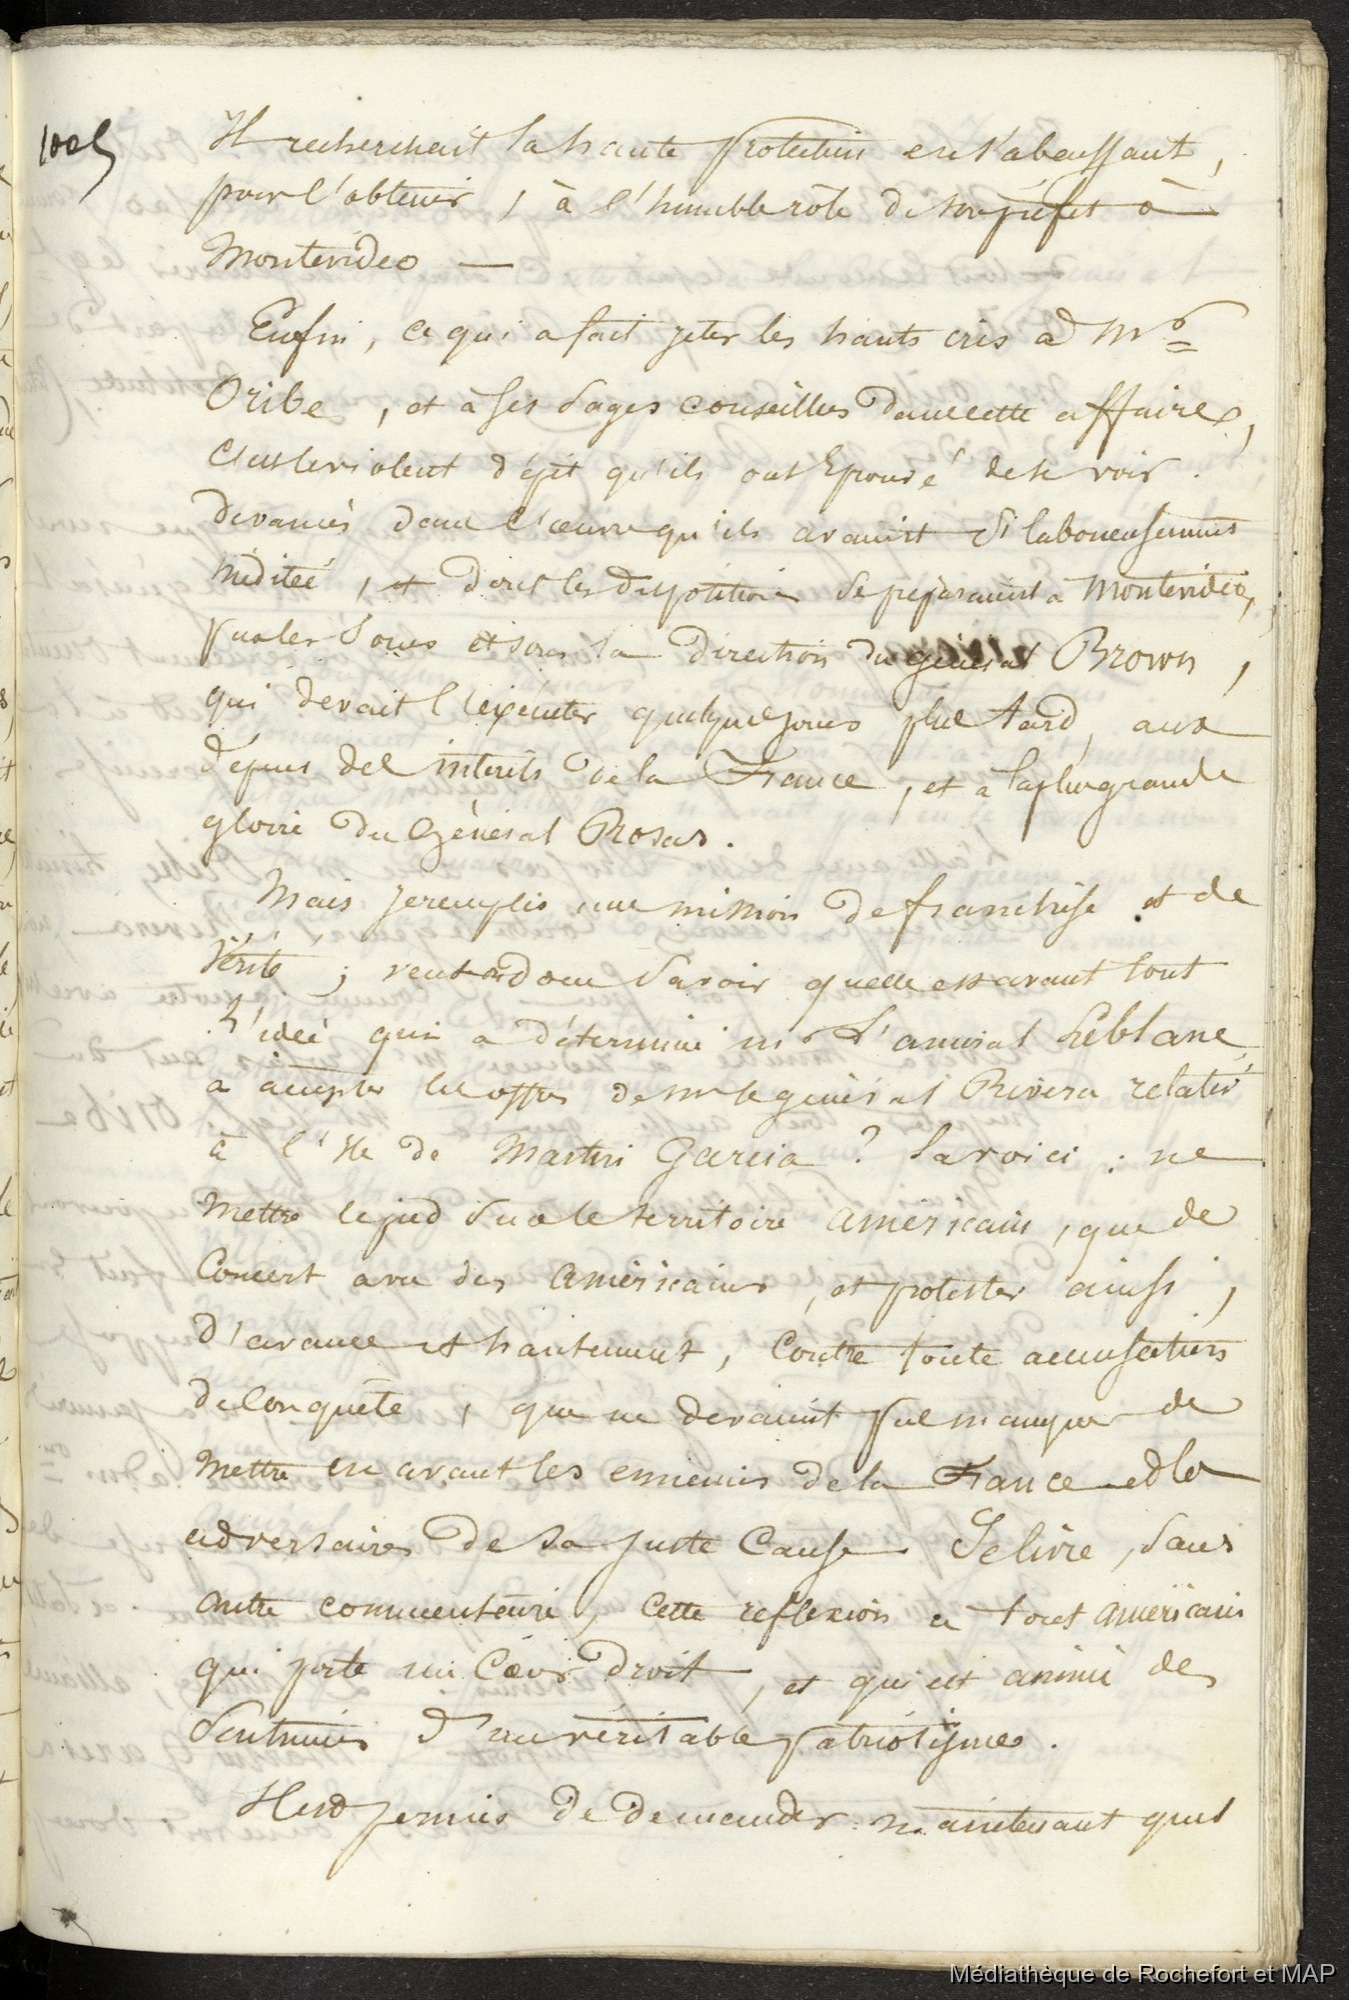 1005
Il recherchait la haute protection en s'abaissant,
pour l'obtenir, à l'humble rôle de son préfet à
Montevideo —
Enfin, ce qui a fait jeter les hauts cris à Mr
Oribe, et à ses sages conseillers dans cette affaire,
c'est le violent dépit qu'ils ont éprouvé de se voir
devancés dans l'œuvre qu'ils avaient si laborieusement
méditée, et dont les dispositions se préparaient à Montevideo,
par les soins et sous la direction du général Brown,
qui devait l'exécuter quelques jours plus tard, aux
dépens des intérêts de la France, et à la plus grande
gloire du Général Rosas.
Mais je remplis une mission de franchise et de
vérité; veut-on donc savoir quelle est avant tout
l'idée qui a déterminé mr l'amiral Leblanc
à accepter les offres de mr le général Rivera relatives
à l'Ile de Martin Garcia? la voici: ne
mettre le pied sur le territoire américain, que de
concert avec des américains, et protester ainsi,
d'avance et hautement, contre toute accusation
de conquête, que ne devaient pas manquer de
mettre en avant les ennemis de la France et les
adversaires de sa juste cause. Je livre, sans
autre commentaire, cette reflexion à tout américain
qui porte un cœur droit, et qui est animé de
sentimens d'un véritable patriotisme.
Il est permis de demander maintenant quel
Médiathèque de Rochefort et MAP